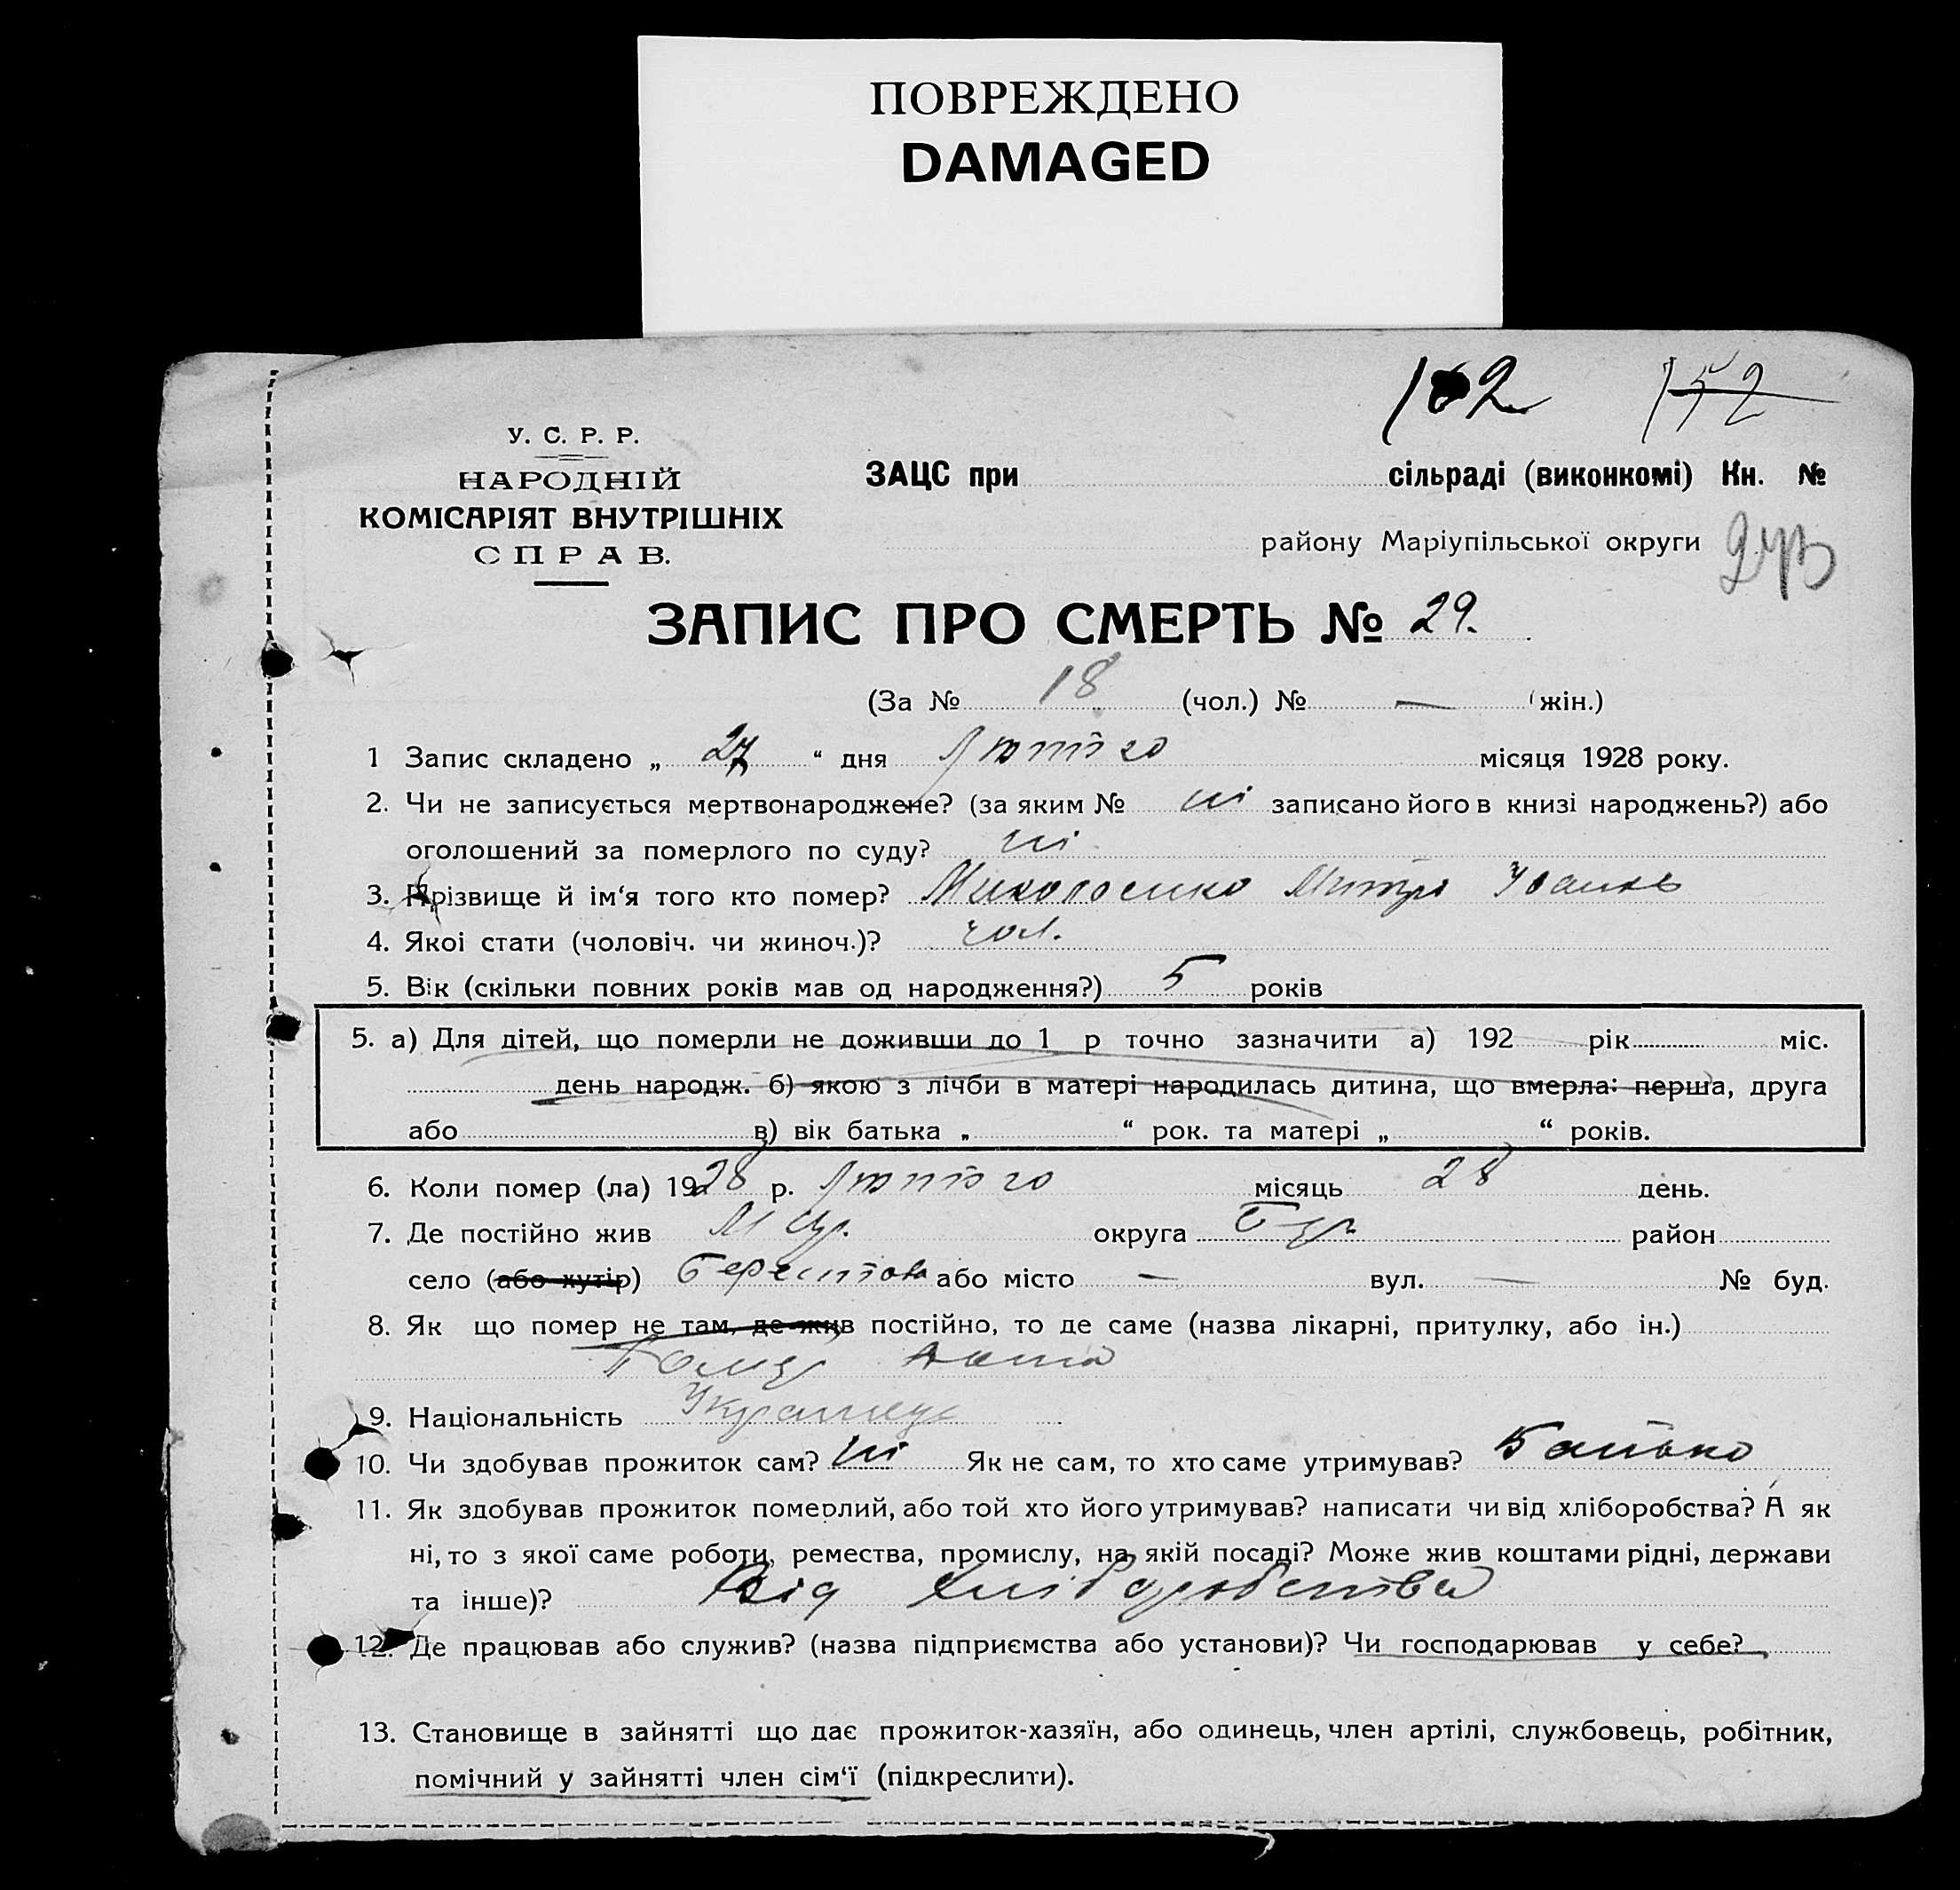 ПОВРЕЖДЕНО
DAMAGED
152
У. С. Р. Р.
НАРОДНІЙ
КОМІСАРІЯТ ВНУТРІШНІХ
СПРАВ.
ЗАЦС при сільраді (виконкомі) Кн. №
району Маріупільської округи
ЗАПИС ПРО СМЕРТЬ № 29.
(За № 18 (чол.) № — (жін.)
1 Запис складено „ 27 “ дня Лютого місяця 1928 року.
2. Чи не записується мертвонароджене? (за яким № ні записано його в книзі народжень?) або
оголошений за померлого по суду? ні
3. Прізвище й ім‘я того кто помер? Миколоенко Митря Іванов
4. Якоі стати (чоловіч. чи жиноч.)? чол.
5. Вік (скільки повних років мав од народження?) 5 років
5. а) Для дітей, що померли не доживши до 1 р точно зазначити а) 192 рік міс.
день народж. б) якою з лічби в матері народилась дитина, що вмерла: перша, друга
або в) вік батька „ “ рок. та матері „ “ років.
6. Коли помер (ла) 1928 р. Лютого місяць 28 день.
7. Де постійно жив М ор. округа Бер. район
село (або хутір) Берестова або місто — вул. — № буд.
8. Як що помер не там, де жив постійно, то де саме (назва лікарні, притулку, або ін.)
9. Національність Українець
10. Чи здобував прожиток сам? ні Як не сам, то хто саме утримував? Батько
11. Як здобував прожиток померлий, або той хто його утримував? написати чи від хліборобства? А як
ні, то з якої саме роботи, ремества, промислу, на якій посаді? Може жив коштами рідні, держави
та інше)? Від хліборобства
12. Де працював або служив? (назва підприємства або установи)? Чи господарював у себе?
13. Становище в зайнятті що дає прожиток-хазяїн, або одинець, член артілі, службовець, робітник,
помічний у зайнятті член сім‘ї (підкреслити).